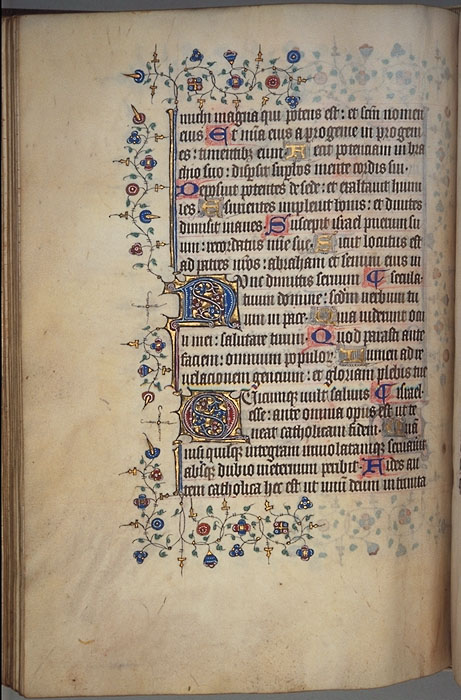 michi magna qui potens est : et scm̄ nomen
eius Et mīa eius a progenie in progeni
es : timentibꝫ eum Fecit potenciam in bra
chio suo : dispsit supbos mente cordis sui .
Deposuit potentes de sede : et exaltauit humi
les Esurientes impleuit bonis : et diuites
dimisit inanes . Suscepit israel puerum su
um : recordatus mīe sue . Sicut locutus est
ad patres nr̄os : abraham et semini eius in
Nunc dimittis seruum secula .
tuum domine : scdm̄ verbum tu
um in pace . Quia uiderunt ocu
li mei : salutare tuum . Quod parasti ante
faciem : omnium populoꝝ . Lumen ad re
uelacionem gentium : et gloriam plebis tue
Quicunqꝫ uult saluus israel .
esse : ante omnia opus est ut te
neat catholicam fidem . Quam
nisi quisqꝫ integram inuiolatamqꝫ seruauit
absqꝫ dubio ineternum peribit . Fides au
tem catholica hec est ut unū deum in trinita